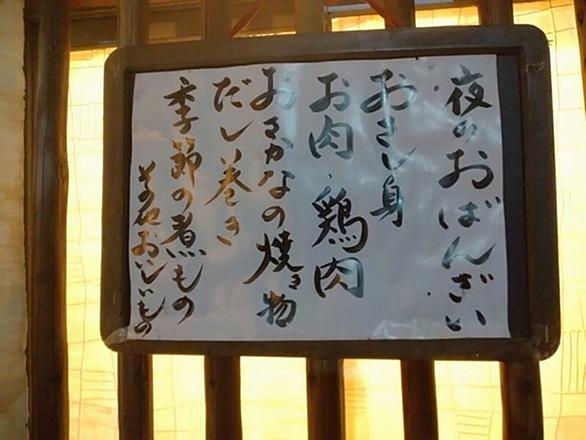 夜のおばんざい
おさし身
お肉・鶏肉
おさかなの焼き物
だし巻き
季節の煮もの
その他おいしいもの